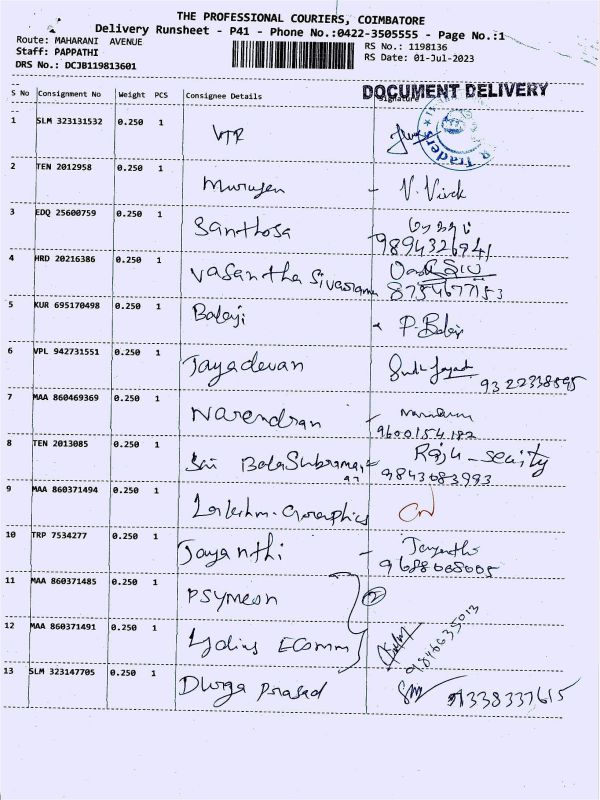 THE PROFESSIONAL COURIERS, COIMBATORE
Delivery Runsheet - P41 - Phone No.:0422-3505555 - Page No.:1
Route: MAHARANI AVENUE
RS No.: 1198136
Staff: PAPPATHI
RS Date: 01-Jul-2023
DRS No.: DCJB119813601
DOCUMENT DELIVERY
S No Consignment No Weight PCS Consignee Details Signature
1 SLM 323131532 0.250 1 VTR
Traders
2 TEN 2012958 0.250 1 Murugen - V. Vivek
3 EDQ 25600759 0.250 1 Santhosa
9894326941
4 HRD 20216386 0.250 1 Vasantha Sivarama
8754677153
5 KUR 695170498 0.250 1 Balaji P. Balaji
6 VPL 942731551 0.250 1 Jayadevan
9322338595
7 MAA 860469369 0.250 1 Narendran
9600154182
8 TEN 2013085 0.250 1 Sri BalaSubramani Raju - secity
9843083993
9 MAA 860371494 0.250 1 Lakshmi Graphics
10 TRP 7534277 0.250 1 Jayanthi - Jayanthi
9688068005
11 MAA 860371485 0.250 1 Psymeon 2
12 MAA 860371491 0.250 1 Lydius EComm
9846635013
13 SLM 323147705 0.250 1 Durga Prasad SM 9338337615